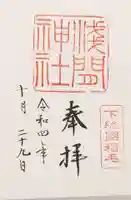 下総國稲毛
奉拝
浅間神社
令和四年
十月二十九日